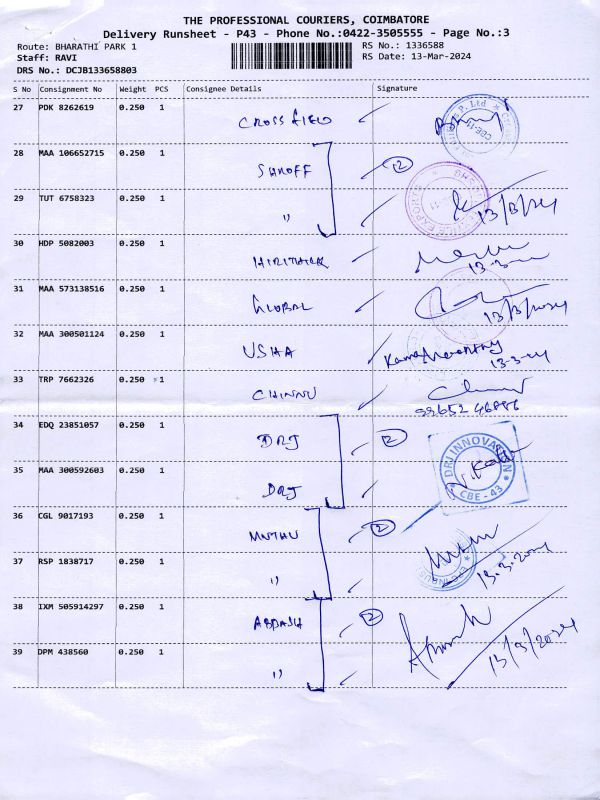 THE PROFESSIONAL COURIERS, COIMBATORE
Delivery Runsheet - P43 - Phone No.:0422-3505555 - Page No.:3
Route: BHARATHI PARK 1 RS No.: 1336588
Staff: RAVI RS Date: 13-Mar-2024
DRS No.: DCJB133658803
S No Consignment No Weight PCS Consignee Details Signature
27 PDK 8262619 0.250 1 CROSS FIELD
28 MAA 106652715 0.250 1 SHROFF 2
29 TUT 6758323 0.250 1 " 13/3/24
30 HDP 5082003 0.250 1
31 MAA 573138516 0.250 1 GLOBAL 13/3/2024
32 MAA 300501124 0.250 1 USHA 13-3-24
33 TRP 7662326 0.250 1 CHINNU
99652 46886
34 EDQ 23851057 0.250 1 DRJ 2
DRJ INNOVATION
35 MAA 300592603 0.250 1 DRJ
CBE - 43
36 CGL 9017193 0.250 1 MUTHU 2
37 RSP 1838717 0.250 1 " 13.3.2024
38 IXM 505914297 0.250 1 2
39 DPM 438560 0.250 1 " 13/3/2024